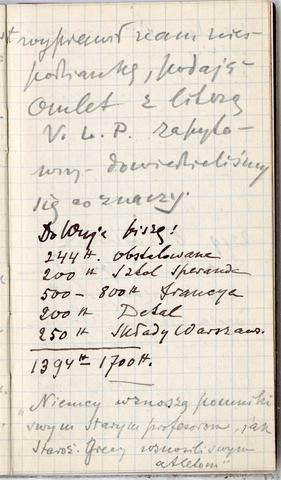 wyprawił nam nies-
podziankę, podając
Omlet z literą
V. L. P. zapyto-
wszy - dowiedzieliśmy
się co znaczy.
Do Wuja piszą!
244 tt. obstalowane
200 tt Szkoł Speranda
500 - 800 tt Francya
200 tt Detal
250 tt Składy Warszaws.
1394 tt - 1700 tt.
"Niemcy wznoszą pomniki
swym Starym profesorom, jak
Staroż. Grecy wznosili swym
atletom"